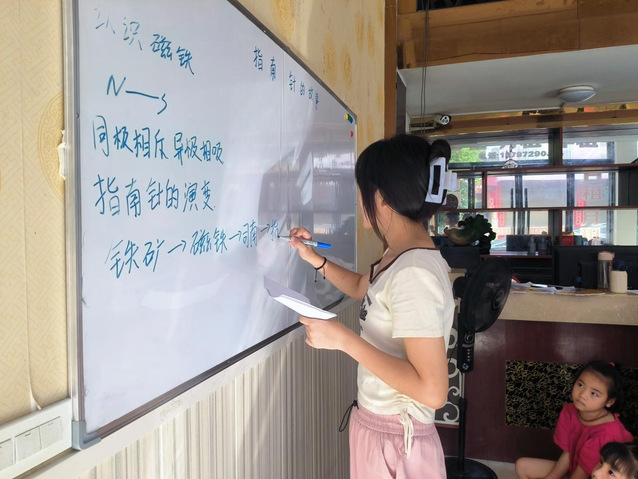 认识磁铁
指南针的故事
N—S
同极相斥 导极相吸
指南针的演变
铁矿→磁铁→司南→指